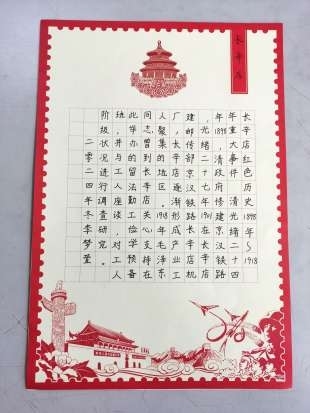 长辛店
长辛店红色历史1898年～1918
年重大事件 清光绪二十四
年1898，清政府修建京汉铁路
，光绪二十七年1901在长辛店
建邮传部京汉铁路长辛店机
厂，长辛店逐渐形成产业工
人聚集的地区。1918年毛泽东
同志曾到长辛店关心支持在
此举办的留法勤工俭学预备
班，并与工人座谈，对工人
阶级状况进行调查研究。
二零二四年冬季梦莹